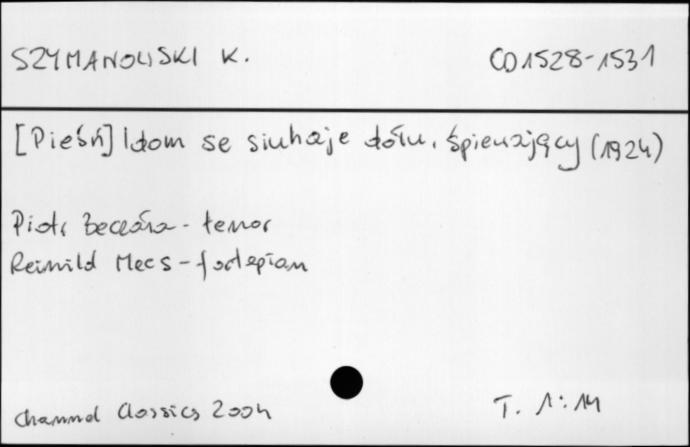 SZYMANOWSKI K. CD1528-1531
[Pieśń] Idom se siuhaje dołu, śpiewający (1924)
Piotr Beczała - tenor
Reinild Mees - fortepian
Channel Classics 2004
T. 1:14